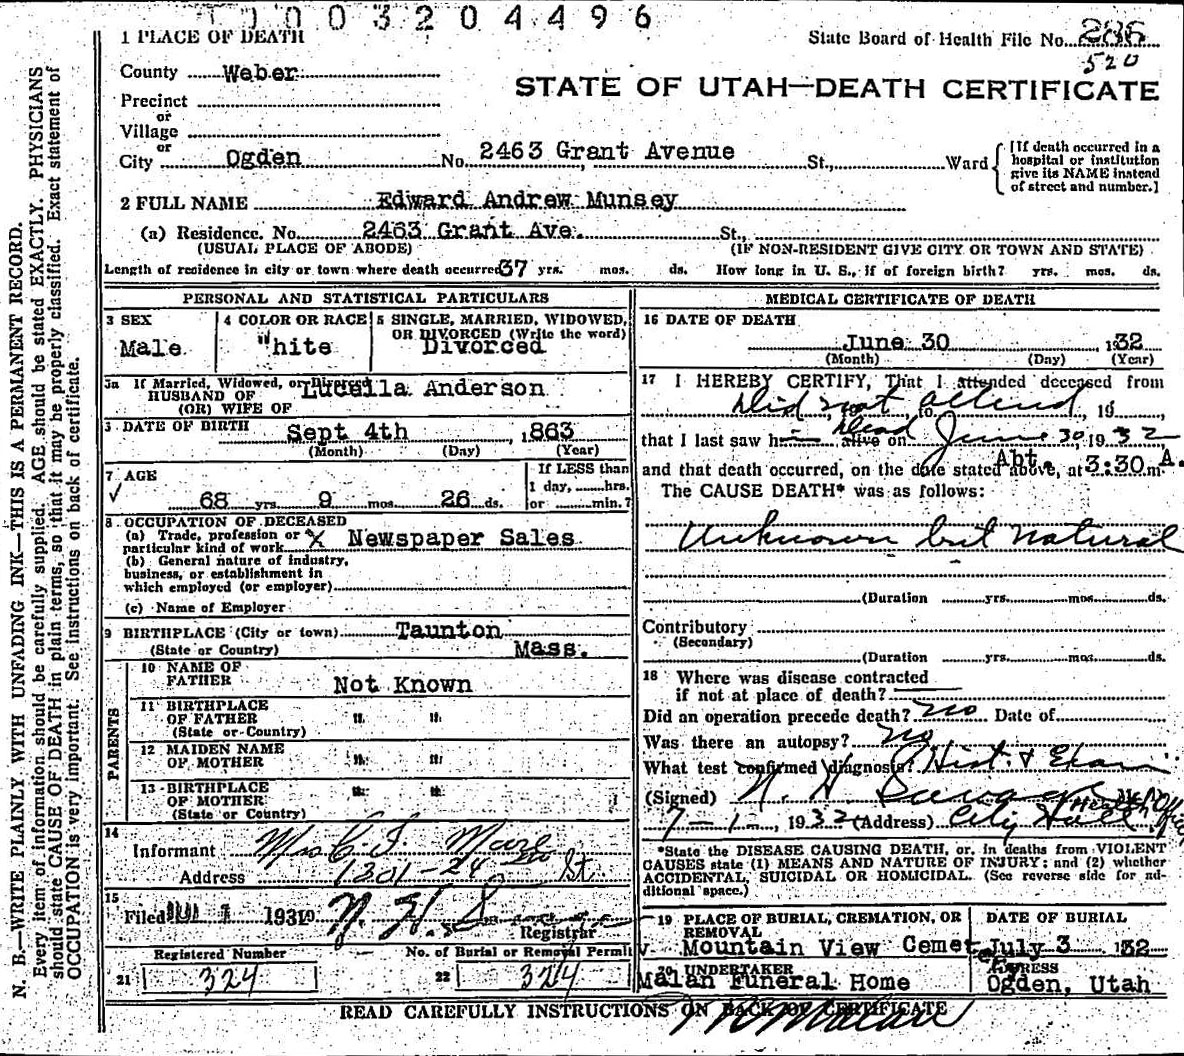 0003204496
1 PLACE OF DEATH
State Board of Health File No. 286
520
County Weber
STATE OF UTAH—DEATH CERTIFICATE
Precinct
or
Village
or
City Ogden No. 2463 Grant Avenue St., Ward
[If death occurred in a hospital or institution give its NAME instead of street and number.]
2 FULL NAME Edward Andrew Munsey
(a) Residence. No. 2463 Grant Ave. St.,
(USUAL PLACE OF ABODE) (IF NON-RESIDENT GIVE CITY OR TOWN AND STATE)
Length of residence in city or town where death occurred 37 yrs. mos. ds. How long in U. S., if of foreign birth? yrs. mos. ds.
PERSONAL AND STATISTICAL PARTICULARS
3 SEX
Male
4 COLOR OR RACE
"hite
5 SINGLE, MARRIED, WIDOWED, OR DIVORCED (Write the word)
Divorced
5a If Married, Widowed, or Divorced
HUSBAND OF Lucella Anderson
(OR) WIFE OF
DATE OF BIRTH Sept 4th, 1863
(Month) (Day) (Year)
7 AGE
68 yrs. 9 mos. 26 ds.
If LESS than
1 day, hrs.
or min.?
8 OCCUPATION OF DECEASED
(a) Trade, profession or
particular kind of work X Newspaper Sales
(b) General nature of industry,
business, or establishment in
which employed (or employer)
(c) Name of Employer
9 BIRTHPLACE (City or town) Taunton
(State or Country) Mass.
PARENTS
10 NAME OF
FATHER Not Known
11 BIRTHPLACE
OF FATHER " "
(State or Country)
12 MAIDEN NAME
OF MOTHER " "
13 BIRTHPLACE
OF MOTHER " "
(State or Country)
14
Informant Mrs C. I.
Address 1301-24 St.
15
Filed JUL 1 193 N. H.
Registrar
Registered Number
21 324
No. of Burial or Removal Permit
22 324
MEDICAL CERTIFICATE OF DEATH
16 DATE OF DEATH
June 30, 1932
(Month) (Day) (Year)
17 I HEREBY CERTIFY, That I attended deceased from
Did not attend, 19
that I last saw h alive on dead June 30 1932
and that death occurred, on the date stated above, at Abt. 3:30 A.m
The CAUSE DEATH* was as follows:
Unknown but natural
(Duration yrs. mos. ds.
Contributory
(Secondary)
(Duration yrs. mos. ds.
18 Where was disease contracted
if not at place of death?
Did an operation precede death? no Date of
Was there an autopsy? no
What test confirmed diagnosis? Hist. & Exam
(Signed) N. H. Health Office
7-1-, 1932 (Address) City Hall
*State the DISEASE CAUSING DEATH, or, in deaths from VIOLENT
CAUSES state (1) MEANS AND NATURE OF INJURY; and (2) whether
ACCIDENTAL, SUICIDAL OR HOMICIDAL. (See reverse side for ad-
ditional space.)
19 PLACE OF BURIAL, CREMATION, OR
REMOVAL
Mountain View Cemet
DATE OF BURIAL
July 3 1932
20 UNDERTAKER
Malan Funeral Home
ADDRESS
Ogden, Utah
READ CAREFULLY INSTRUCTIONS ON BACK OF CERTIFICATE
N. B.—WRITE PLAINLY WITH UNFADING INK—THIS IS A PERMANENT RECORD.
Every item of information should be carefully supplied. AGE should be stated EXACTLY. PHYSICIANS
should state CAUSE OF DEATH in plain terms, so that it may be properly classified. Exact statement of
OCCUPATION is very important. See instructions on back of certificate.